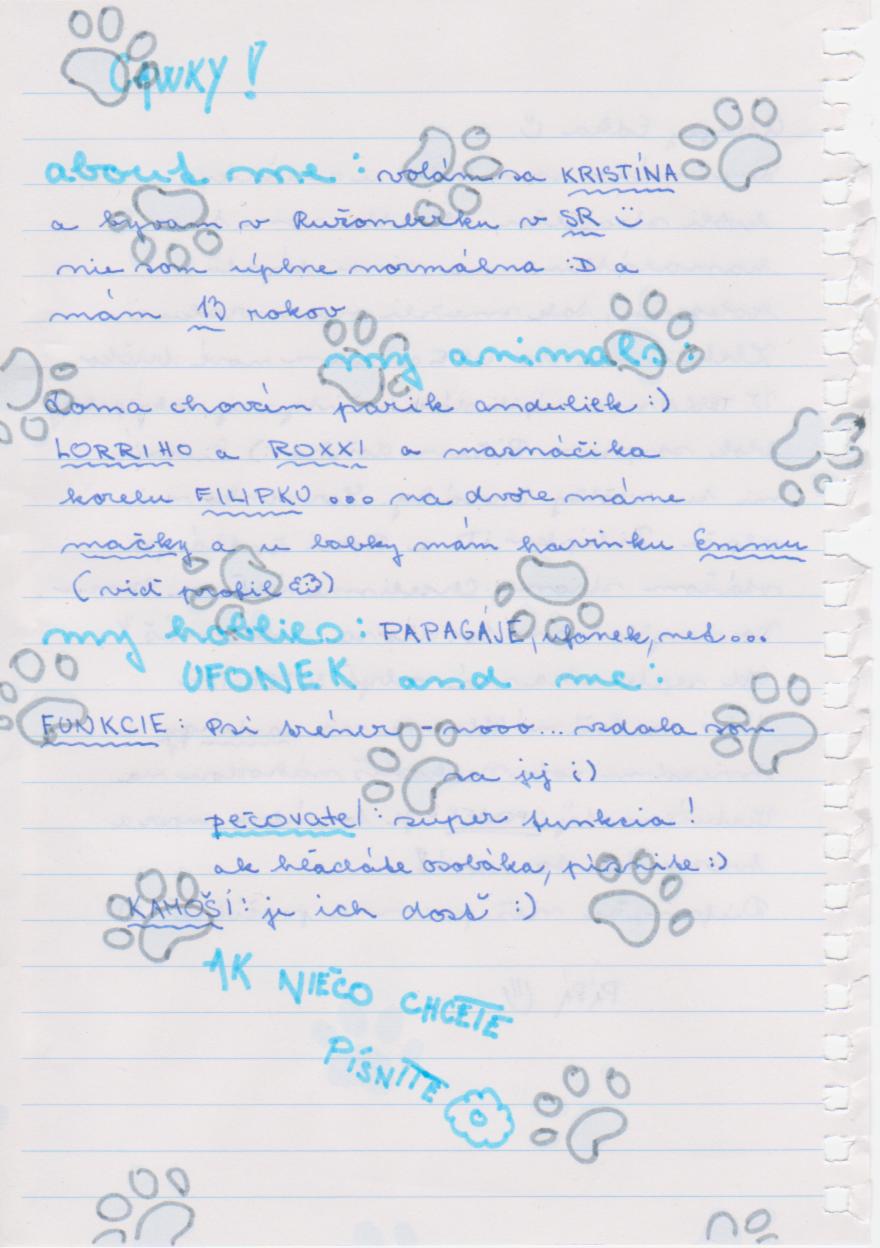 Čawky!
about me: volám sa KRISTÍNA
a bývam v Ružomberku v SR :)
nie som úplne normálna :D a
mám 13 rokov
my animals:
doma chovám párik anduliek :)
LORRIHO a ROXXI a maznáčika
korelu FILIPKU ooo na dvore máme
mačky a u babky mám havinku Emmu
(viď profil <3)
my hobbies: PAPAGÁJE, ufonek, net...
UFONEK and me:
FUNKCIE: Psí tréner - nooo... vzdala som
sa jej ;)
pečovatel: super funkcia!
ak hľadáte osobáka, písnite :)
KAMOŠÍ: je ich dosť :)
AK NIEČO CHCETE
PÍSNITE